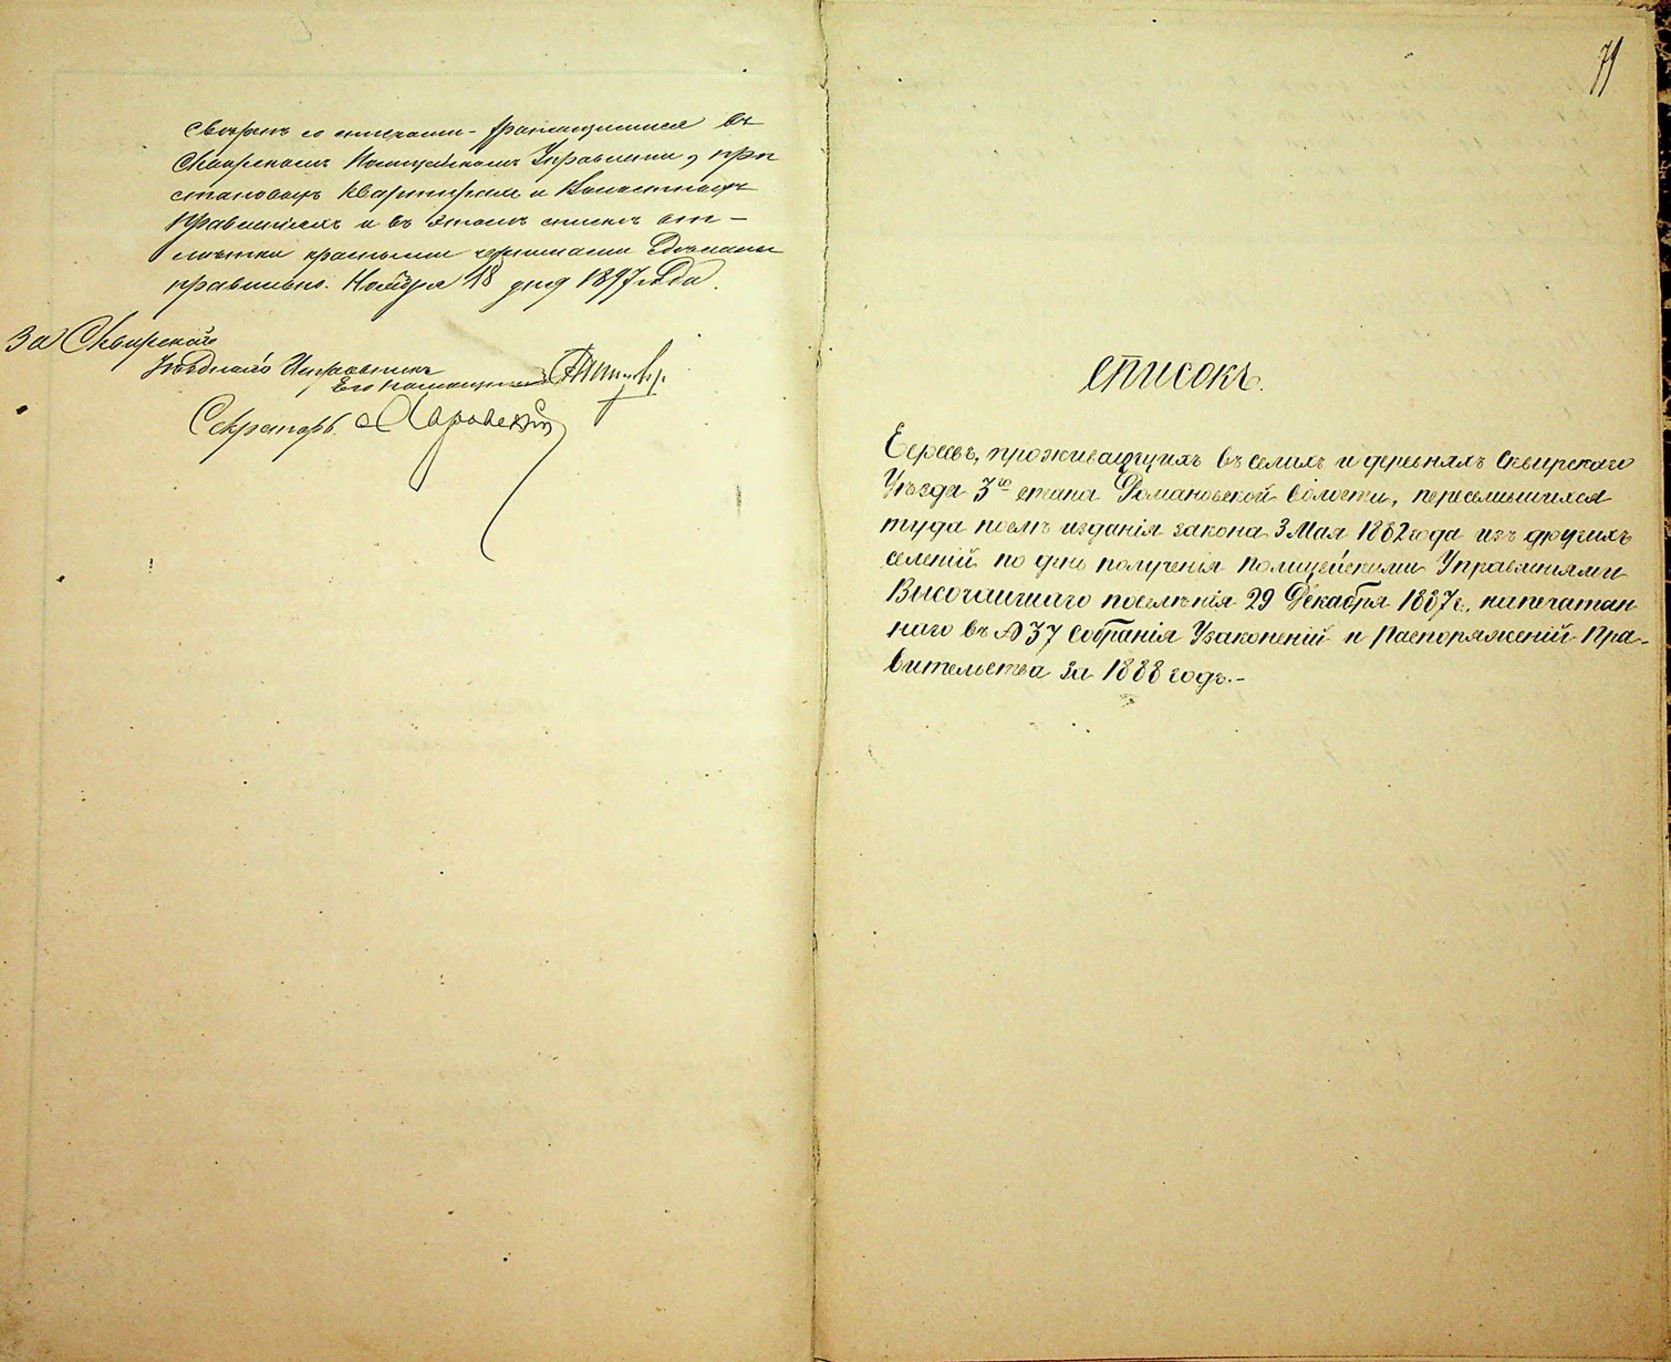 свѣренъ со списками хранящимися въ
Сквирскомъ Полицейскомъ Управленіи, при
становыхъ квартирахъ и Волостныхъ
Правленіяхъ и въ этомъ спискѣ от-
мѣтки красными чернилами сдѣланы
правильно. Ноября 18 дня 1897 года.
За Сквирскаго
Уѣзднаго Исправника
Его Помощникъ
Секретарь
79
СПИСОКЪ.
Евреевъ, проживающихъ въ селахъ и деревняхъ Сквирскаго
Уѣзда 3го стана Романовской волости, переселившихся
туда послѣ изданія закона 3 Мая 1882 года изъ другихъ
селеній по день полученія Полицейскими Управленіями
Высочайшаго повелѣнія 29 Декабря 1887 г., напечатан
наго въ № 37 Собранія Узаконеній и Распоряженій Пра-
вительства за 1888 годъ.-